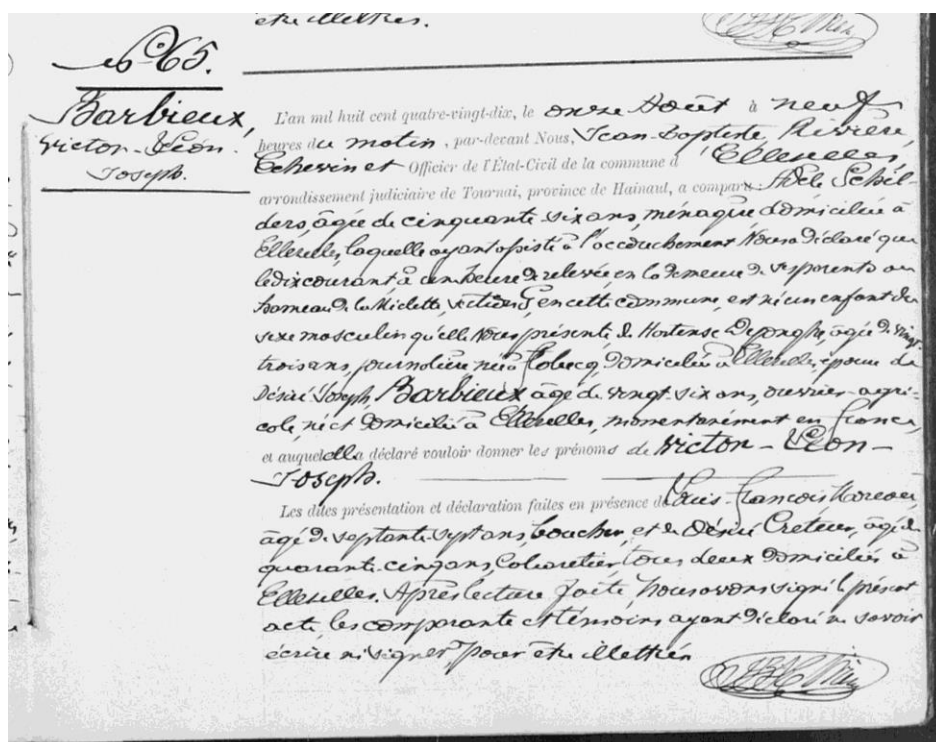 être illettrés.
N° 65.
Barbieux,
Victor-Léon-
Joseph.
L'an mil huit cent quatre-vingt-dix, le onze Août à neuf
heures du matin, par-devant Nous, Jean-Baptiste Rivière
Echevin et Officier de l'État-Civil de la commune d'Ellezelles,
arrondissement judiciaire de Tournai, province de Hainaut, a comparu Adèle Schel-
ders, âgée de cinquante-six ans, ménagère domiciliée à
Ellezelles, laquelle ayant assisté à l'accouchement Nous a déclaré que
le dix courant à une heure de relevée en la demeure de ses parents au
hameau de la Miclette, section G en cette commune, est né un enfant du
sexe masculin qu'elle Nous présente, de Hortense Deponghe, âgée de vingt-
trois ans, journalière née à Flobecq, domiciliée à Ellezelles, épouse de
Désiré Joseph, Barbieux âgé de vingt-six ans, ouvrier-agri-
cole, né et domicilié à Ellezelles, momentanément en France,
et auquel elle a déclaré vouloir donner les prénoms de Victor-Léon-
Joseph.
Les dites présentation et déclaration faites en présence de Louis-François
âgé de septante-sept ans, boucher, et de Désiré Creteur, âgé de
quarante-cinq ans, Cabaretier, tous deux domiciliés à
Ellezelles. Après lecture faite, Nous avons signé le présent
acte, les comparante et témoins ayant déclaré ne savoir
écrire ni signer pour être illettrés